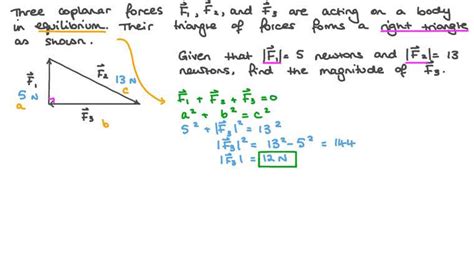 Three coplanar forces F⃗₁, F⃗₂, and F⃗₃ are acting on a body
in equilibrium. Their triangle of forces forms a right triangle
as shown.
Given that |F⃗₁| = 5 newtons and |F⃗₂| = 13
newtons, find the magnitude of F⃗₃.
F⃗₁
5 N
a
F⃗₂
13 N
c
F⃗₃
b
F⃗₁ + F⃗₂ + F⃗₃ = 0
a² + b² = c²
5² + |F⃗₃|² = 13²
|F⃗₃|² = 13² - 5² = 144
|F⃗₃| = 12 N